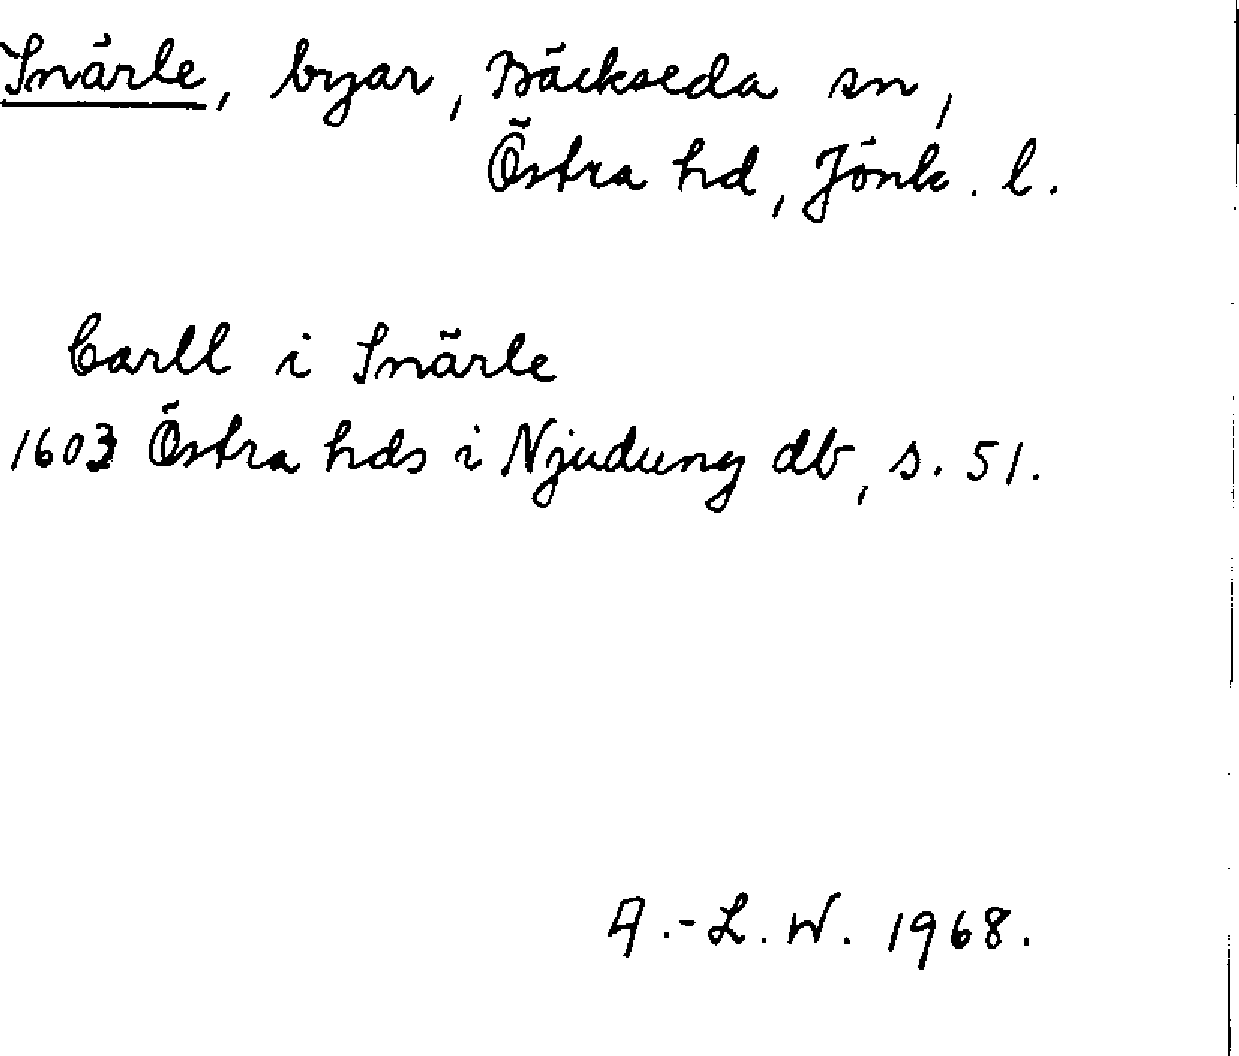 Snärle, byar, Bäckseda sn,
Östra hd, Jönk. l.
Carll i Snärle
1603 Östra hds i Njudung db, s. 51.
A.-L. W. 1968.